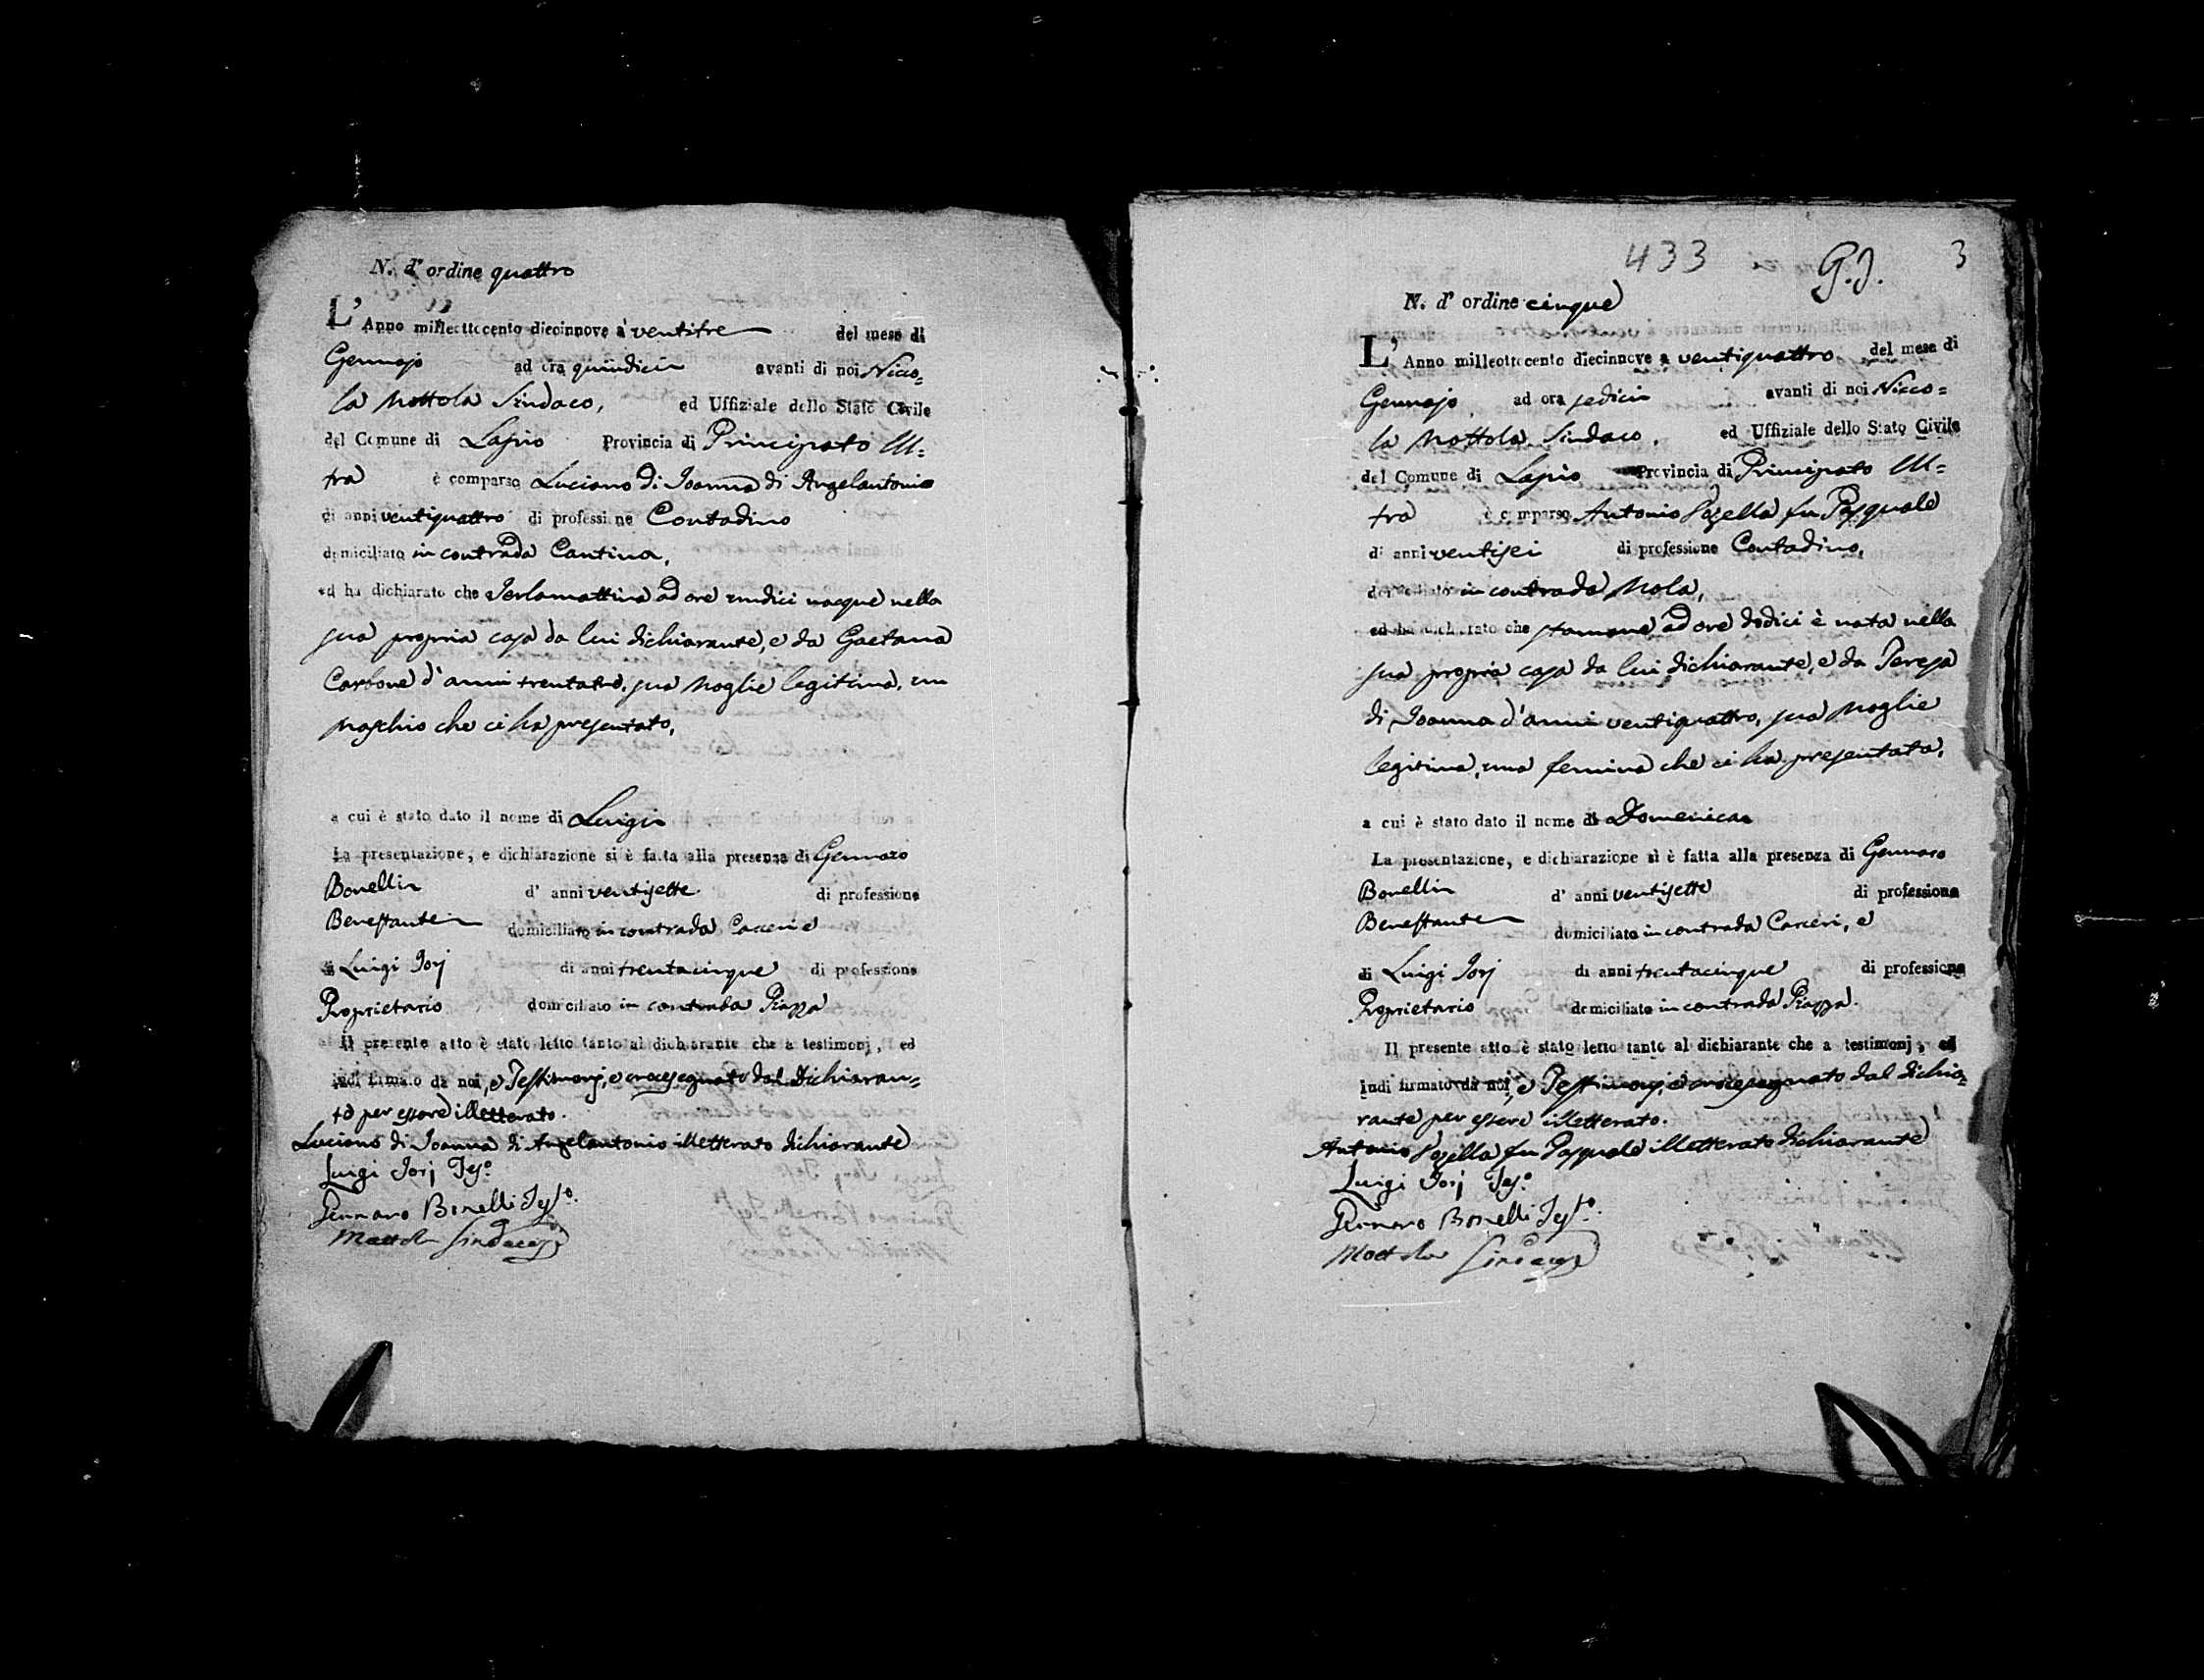 N. d' ordine quattro
L' Anno milleottocento diecinnove a' ventitre del mese di
Gennajo ad ora quindici avanti di noi Nicco=
la Mottola Sindaco, ed Uffiziale dello Stato Civile
del Comune di Lapio Provincia di Principato Ul=
tra è comparso Luciano di Joanna di Angelantonio
di anni ventiquattro di professione Contadino
domiciliato in contrada Cantina,
ed ha dichiarato che jerlamattina ad ore undici nacque nella
sua propria casa da lui dichiarante, e da Gaetana
Carbone d'anni trentatre, sua Moglie legitima, un
Maschio che ci ha presentato,
a cui è stato dato il nome di Luigi
La presentazione, e dichiarazione si è fatta alla presenza di Gennaro
Bonelli d' anni ventisette di professione
Benestante domiciliato in contrada Carceri e
di Luigi Jorj di anni trentacinque di professione
Proprietario domiciliato in contrada Piazza
Il presente atto è stato letto tanto al dichiarante che a testimonj, ed
indi firmato da noi, e Testimonj, e crocesegnato dal Dichiaran=
te per essere illetterato.
Luciano di Joanna di Angelantonio illetterato dichiarante
Luigi Jorj Tes.o
Gennaro Bonelli Test.o
Mottola Sindaco
433 3
N. d' ordine cinque
L' Anno milleottocento diecinnove a ventiquattro del mese di
Gennajo ad ora sedici avanti di noi Nicco=
la Mottola Sindaco, ed Uffiziale dello Stato Civile
del Comune di Lapio Provincia di Principato Ul=
tra è comparso Antonio fu Pasquale
di anni ventisei di professione Contadino,
domiciliato in contrada Mola,
ed ha dichiarato che stamane ad ore dodici è nata nella
sua propria casa da lui dichiarante, e da Teresa
di Joanna d'anni ventiquattro, sua Moglie
legitima, una femina che ci ha presentata,
a cui è stato dato il nome di Domenica
La presentazione, e dichiarazione si è fatta alla presenza di Gennaro
Bonelli d' anni ventisette di professione
Benestante domiciliato in contrada Carceri, e
di Luigi Jorj di anni trentacinque di professione
Proprietario domiciliato in contrada Piazza.
Il presente atto è stato letto tanto al dichiarante che a testimonj, ed
indi firmato da noi, e Testimonj, e crocesegnato dal dichia=
rante per essere illetterato.
Antonio fu Pasquale illetterato dichiarante
Luigi Jorj Tes.o
Gennaro Bonelli Test.o
Mottola Sindaco